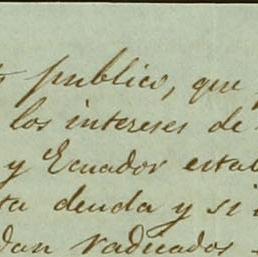 publico, que
los intereses de
y Ecuador estab
ta deuda y si
dan radicados